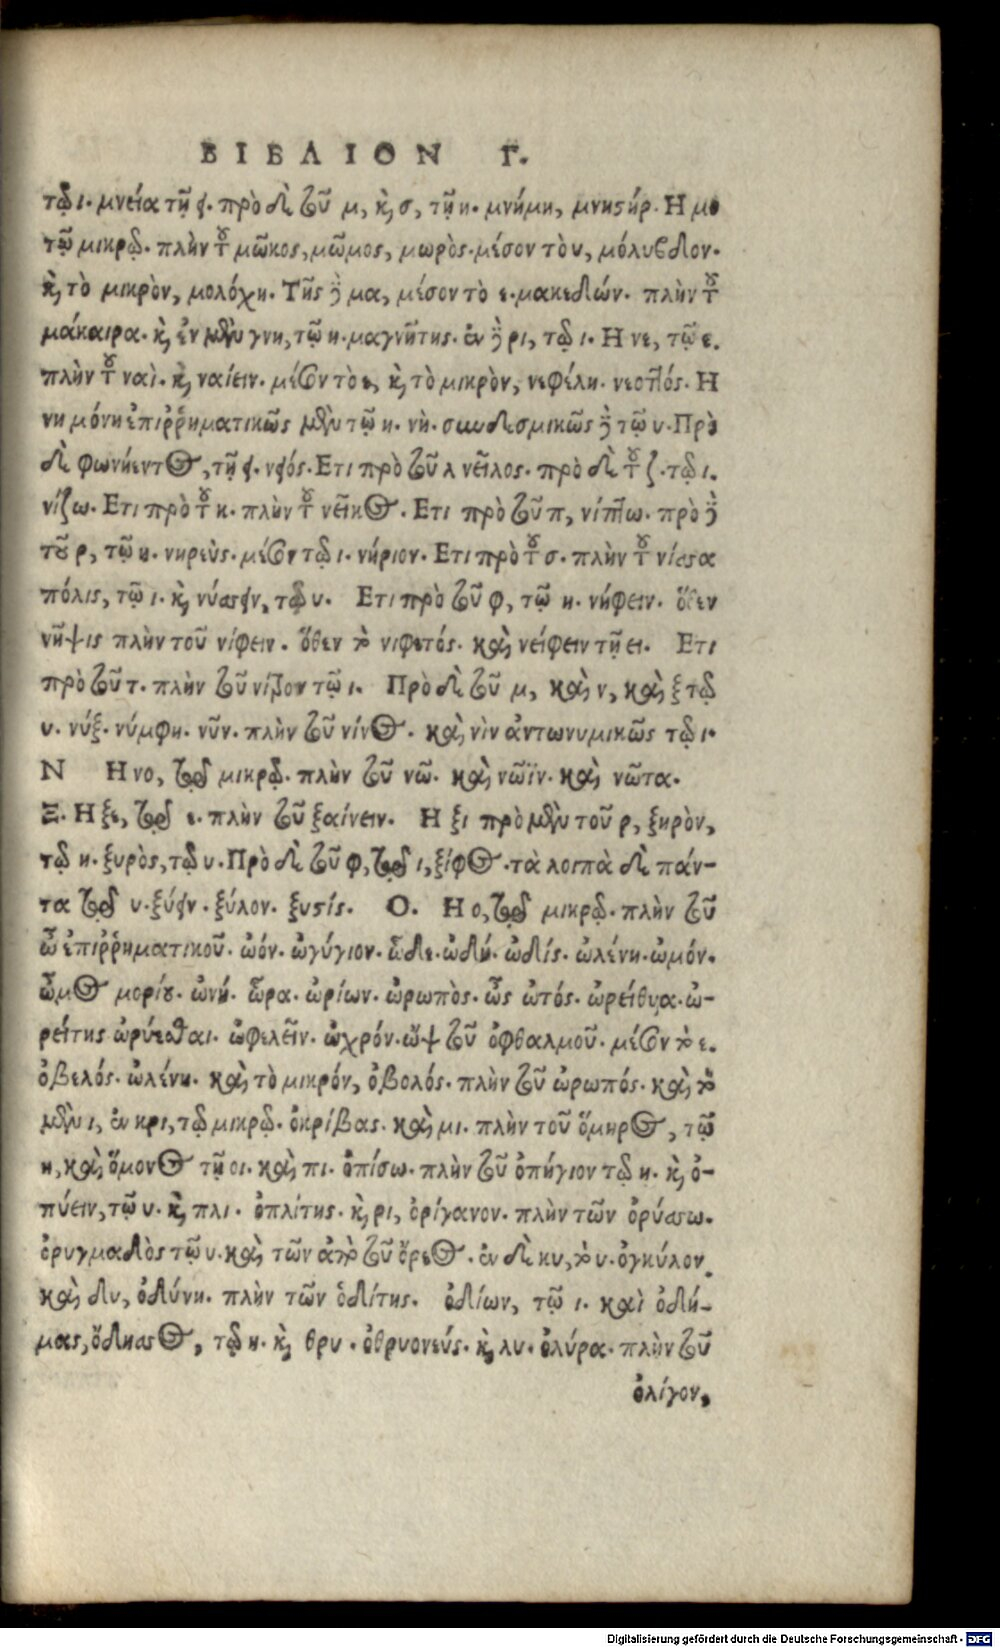 ΒΙΒΛΙΟΝ Γ.
τῷ ι. μνεία τῇ ει. πρὸ δὲ τοῦ μ, καὶ σ, τῇ η. μνήμη, μνηστήρ. Η μο
τῷ μικρῷ. πλὴν τοῦ μῶκος, μῶμος, μωρὸς. μέσον τὸ υ, μόλυβδον.
καὶ τὸ μικρὸν, μολόχη. Τῆς δὲ μα, μέσον τὸ ε. μακεδών. πλὴν τοῦ
μάκαιρα. καὶ ἐν μὲν γνη, τῷ η. μαγνῆτης. ἐν δὲ ρι, τῷ ι. Η νε, τῷ ε.
πλὴν τοῦ ναὶ. καὶ ναίειν. μέσον τὸ ε, καὶ τὸ μικρὸν, νεφέλη. νεοττός. Η
νη μόνη ἐπιρῥηματικῶς μὲν τῷ η. νὴ. συνδεσμικῶς δὲ τῷ υ. Πρὸ
δὲ φωνήεντος, τῇ ει. νειός. Ετι πρὸ τοῦ λ νεῖλος. πρὸ δὲ τοῦ ζ. τῷ ι.
νίζω. Ετι πρὸ τοῦ κ. πλὴν τοῦ νεῖκος. Ετι πρὸ τοῦ π, νίπτω. πρὸ δὲ
τοῦ ρ, τῷ η. νηρεὺς. μέσον τῷ ι. νήριον. Ετι πρὸ τοῦ σ. πλὴν τοῦ νίσσα
πόλις, τῷ ι. καὶ νύσσειν, τῷ υ. Ετι πρὸ τοῦ φ, τῷ η. νήφειν. ὅθεν
νῆψις πλὴν τοῦ νίφειν. ὅθεν τὸ νιφετός. καὶ νείφειν τῇ ει. Ετι
πρὸ τοῦ τ. πλὴν τοῦ νίβον τῷ ι. Πρὸ δὲ τοῦ μ, καὶ ν, καὶ ξ τῷ
υ. νύξ. νύμφη. νῦν. πλὴν τοῦ νίνος. καὶ νὶν ἀντωνυμικῶς τῷ ι.
Ν Η νο, τῷ μικρῷ. πλὴν τοῦ νῶ. καὶ νῶϊν. καὶ νῶτα.
Ξ. Η ξε, τῷ ε. πλὴν τοῦ ξαίνειν. Η ξι πρὸ μὲν τοῦ ρ, ξηρὸν,
τῷ η. ξυρὸς, τῷ υ. Πρὸ δὲ τοῦ φ, τῷ ι, ξίφος. τὰ λοιπὰ δὲ πάν-
τα τῷ υ. ξύειν. ξύλον. ξυστίς. Ο. Η ο, τῷ μικρῷ. πλὴν τοῦ
ὦ ἐπιρῥηματικοῦ. ὠόν. ὠγύγιον. ὧδε. ὠδή. ὠδίς. ὠλένη. ὠμόν.
ὦμος μορίου. ὠνή. ὥρα. ὠρίων. ὠρωπὸς. ὦς ὠτός. ὠρείθυα. ὠ-
ρείτης ὠρύεσθαι. ὠφελεῖν. ὠχρόν. ὤψ τοῦ ὀφθαλμοῦ. μέσον τὸ ε.
ὀβελός. ὠλένη. καὶ τὸ μικρόν, ὀβολός. πλὴν τοῦ ὠρωπός. καὶ τὸ
μὲν ι, ἐν κρι, τῷ μικρῷ. ὀκρίβας. καὶ μι. πλὴν τοῦ ὅμηρος, τῷ
η, καὶ ὅμοιος τῇ οι. καὶ πι. ὀπίσω. πλὴν τοῦ ὀπήγιον τῷ η. καὶ ὀ-
πύειν, τῷ υ. καὶ πλι. ὁπλίτης. καὶ ρι, ὀρίγανον. πλὴν τῶν ὀρύσσω.
ὀρυγμαδὸς τῷ υ. καὶ τῶν ἀπὸ τοῦ ὄρεος. ἐν δὲ κυ, τὸ υ. ὀγκύλον.
καὶ δυ, ὀδύνη. πλὴν τῶν ὁδίτης. ὀδίων, τῷ ι. καὶ ὀδή-
μας, ὄδησσος, τῷ η. καὶ θρυ. ὀθρυονεύς. καὶ λυ. ὀλύρα. πλὴν τοῦ
ὀλίγον,
Digitalisierung gefördert durch die Deutsche Forschungsgemeinschaft - DFG